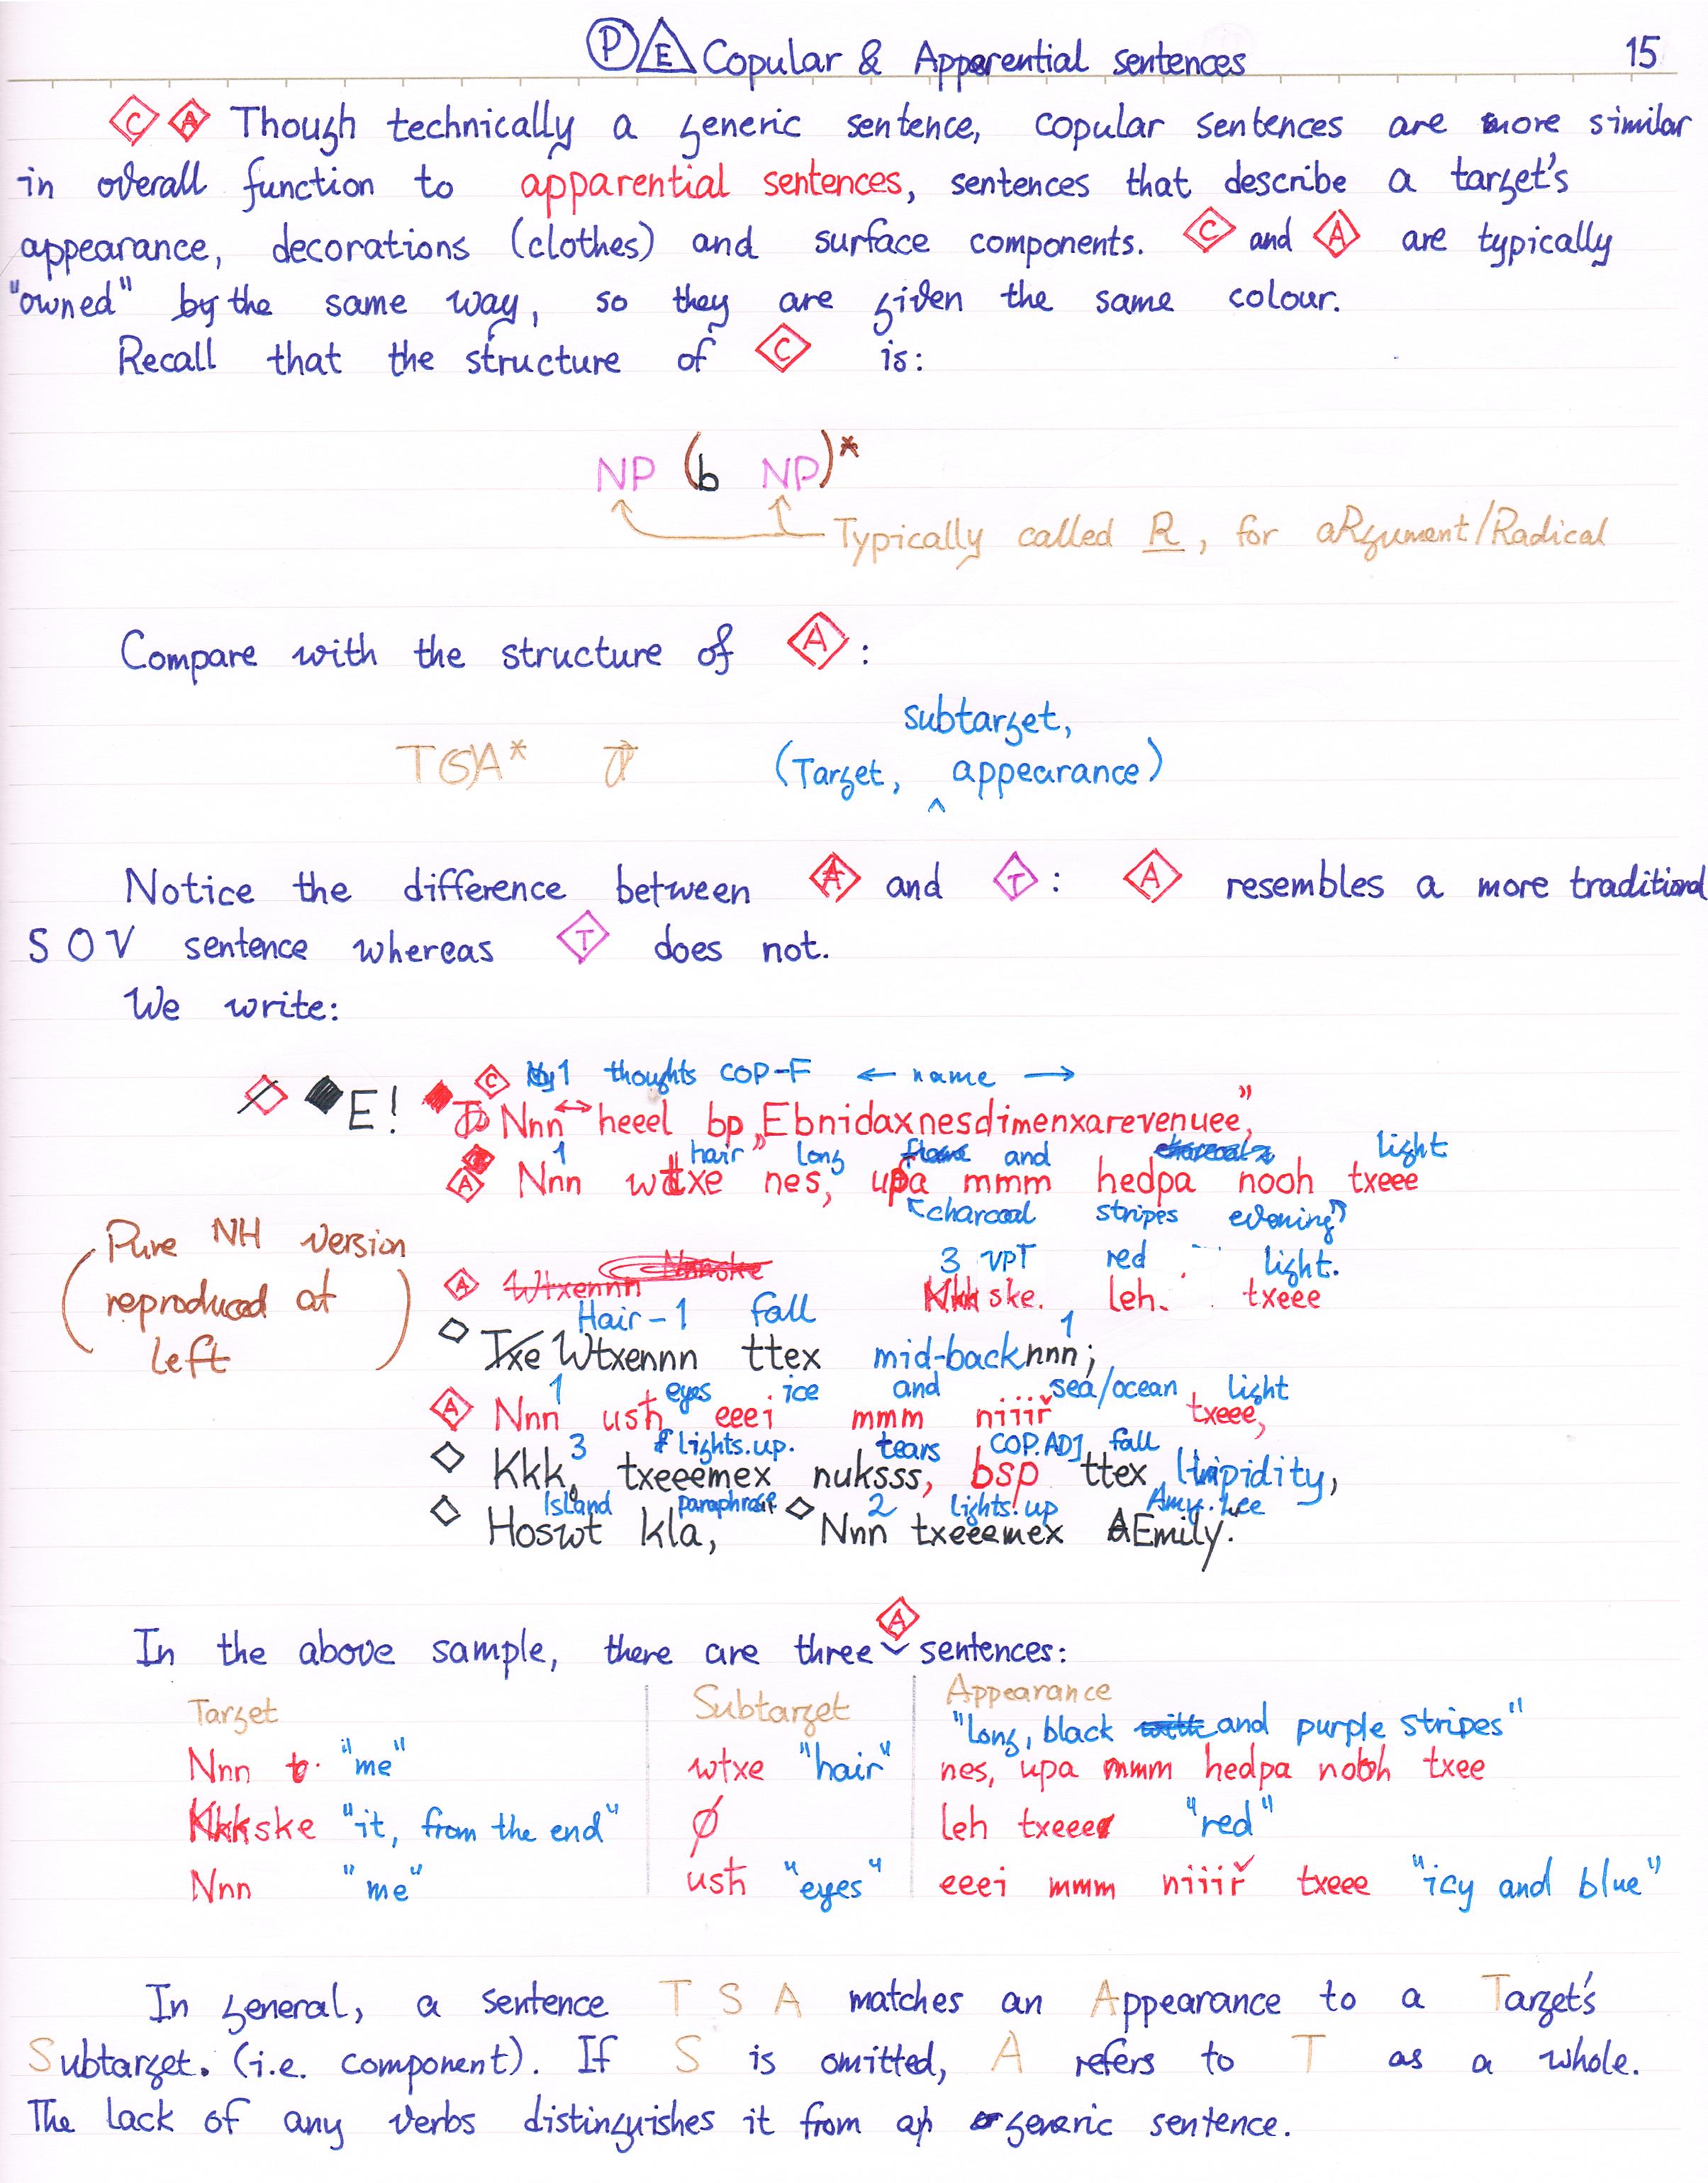 P E Copular & Apparential sentences 15
C A Though technically a generic sentence, copular sentences are more similar
in overall function to apparential sentences, sentences that describe a target's
appearance, decorations (clothes) and surface components. C and A are typically
"owned" by the same way, so they are given the same colour.
Recall that the structure of C is:
NP (b NP)*
Typically called R, for aRgument/Radical
Compare with the structure of A:
subtarget,
T(S)A* (Target, ^ appearance)
Notice the difference between A and T: A resembles a more traditional
SOV sentence whereas T does not.
We write:
C 1 thoughts COP-F ← name →
E! Nnn ↔ heeel bp „Ebnidaxnesdimenxarevenuee”,
1 hair long and light
A Nnn wtxe nes, upa mmm hedpa nooh txeee
charcoal stripes evening
Pure NH version
reproduced at
left
3 VPT red light.
A Kkkske. leh. txeee
Hair-1 fall 1
Wtxennn ttex mid-backnnn;
1 eyes ice and sea/ocean light
A Nnn ush eeei mmm niiiř txeee,
3 lights.up. tears COP.ADJ fall
Kkk, txeeemex nuksss, bsp ttex limpidity,
Island paraphrase 2 lights.up Amy.Lee
Hoswt kla, Nnn txeeemex AEmily.
A
In the above sample, there are three sentences:
Target Subtarget Appearance
"long, black and purple stripes"
Nnn "me" wtxe "hair" nes, upa mmm hedpa nooh txee
Kkkske "it, from the end" ∅ leh txeee "red"
Nnn "me" ush "eyes" eeei mmm niiiř txeee "icy and blue"
In general, a sentence T S A matches an Appearance to a Target's
Subtarget. (i.e. component). If S is omitted, A refers to T as a whole.
The lack of any verbs distinguishes it from a generic sentence.